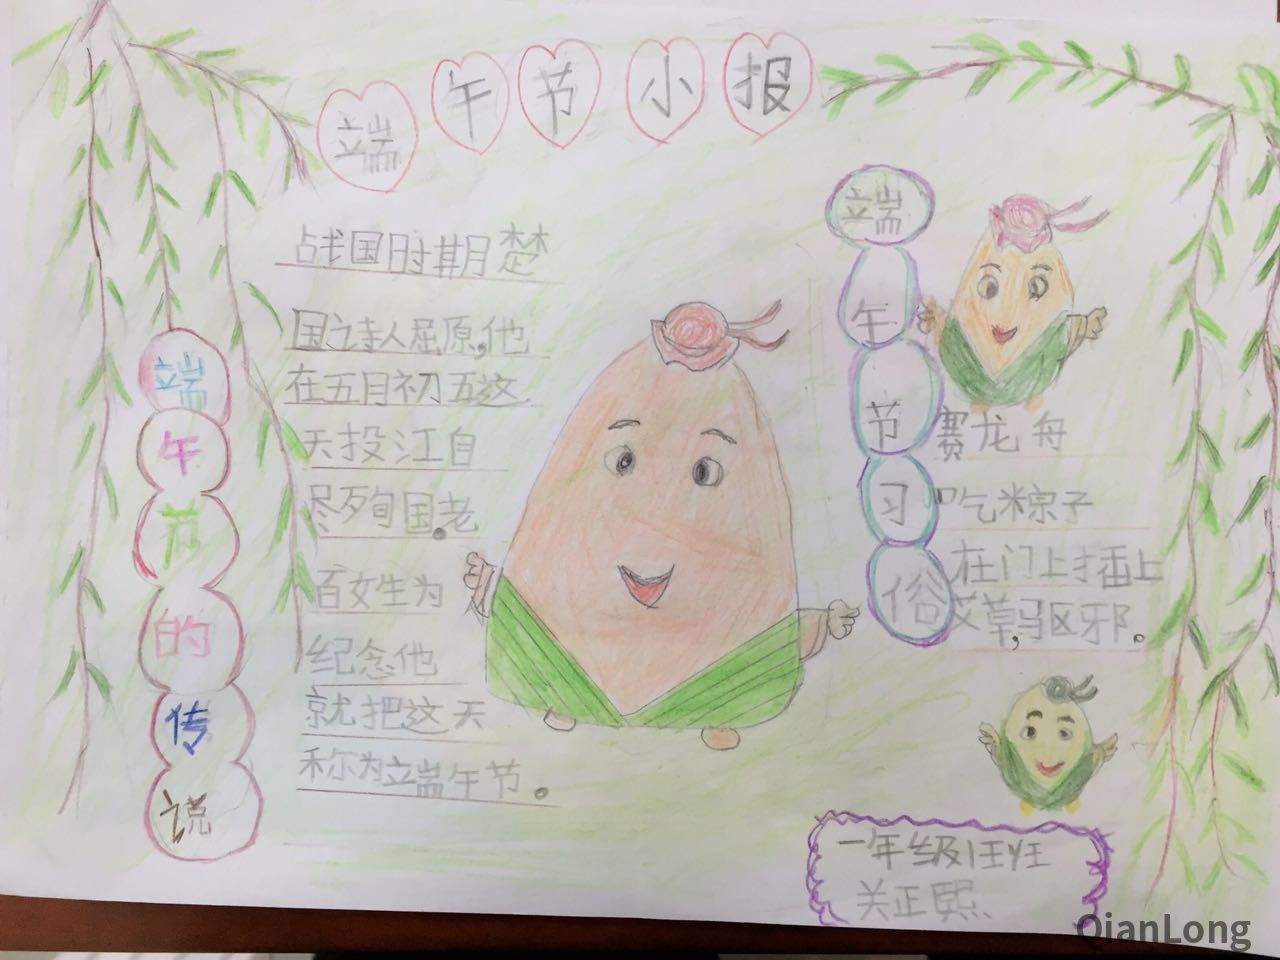 端午节小报
端午节的传说
战国时期楚
国诗人屈原,他
在五月初五这
天投江自
尽殉国。老
百姓为
纪念他
就把这天
称为端午节。
端午节习俗
赛龙舟
吃粽子
在门上插上
艾草,驱邪。
一年级
关正熙
QianLong